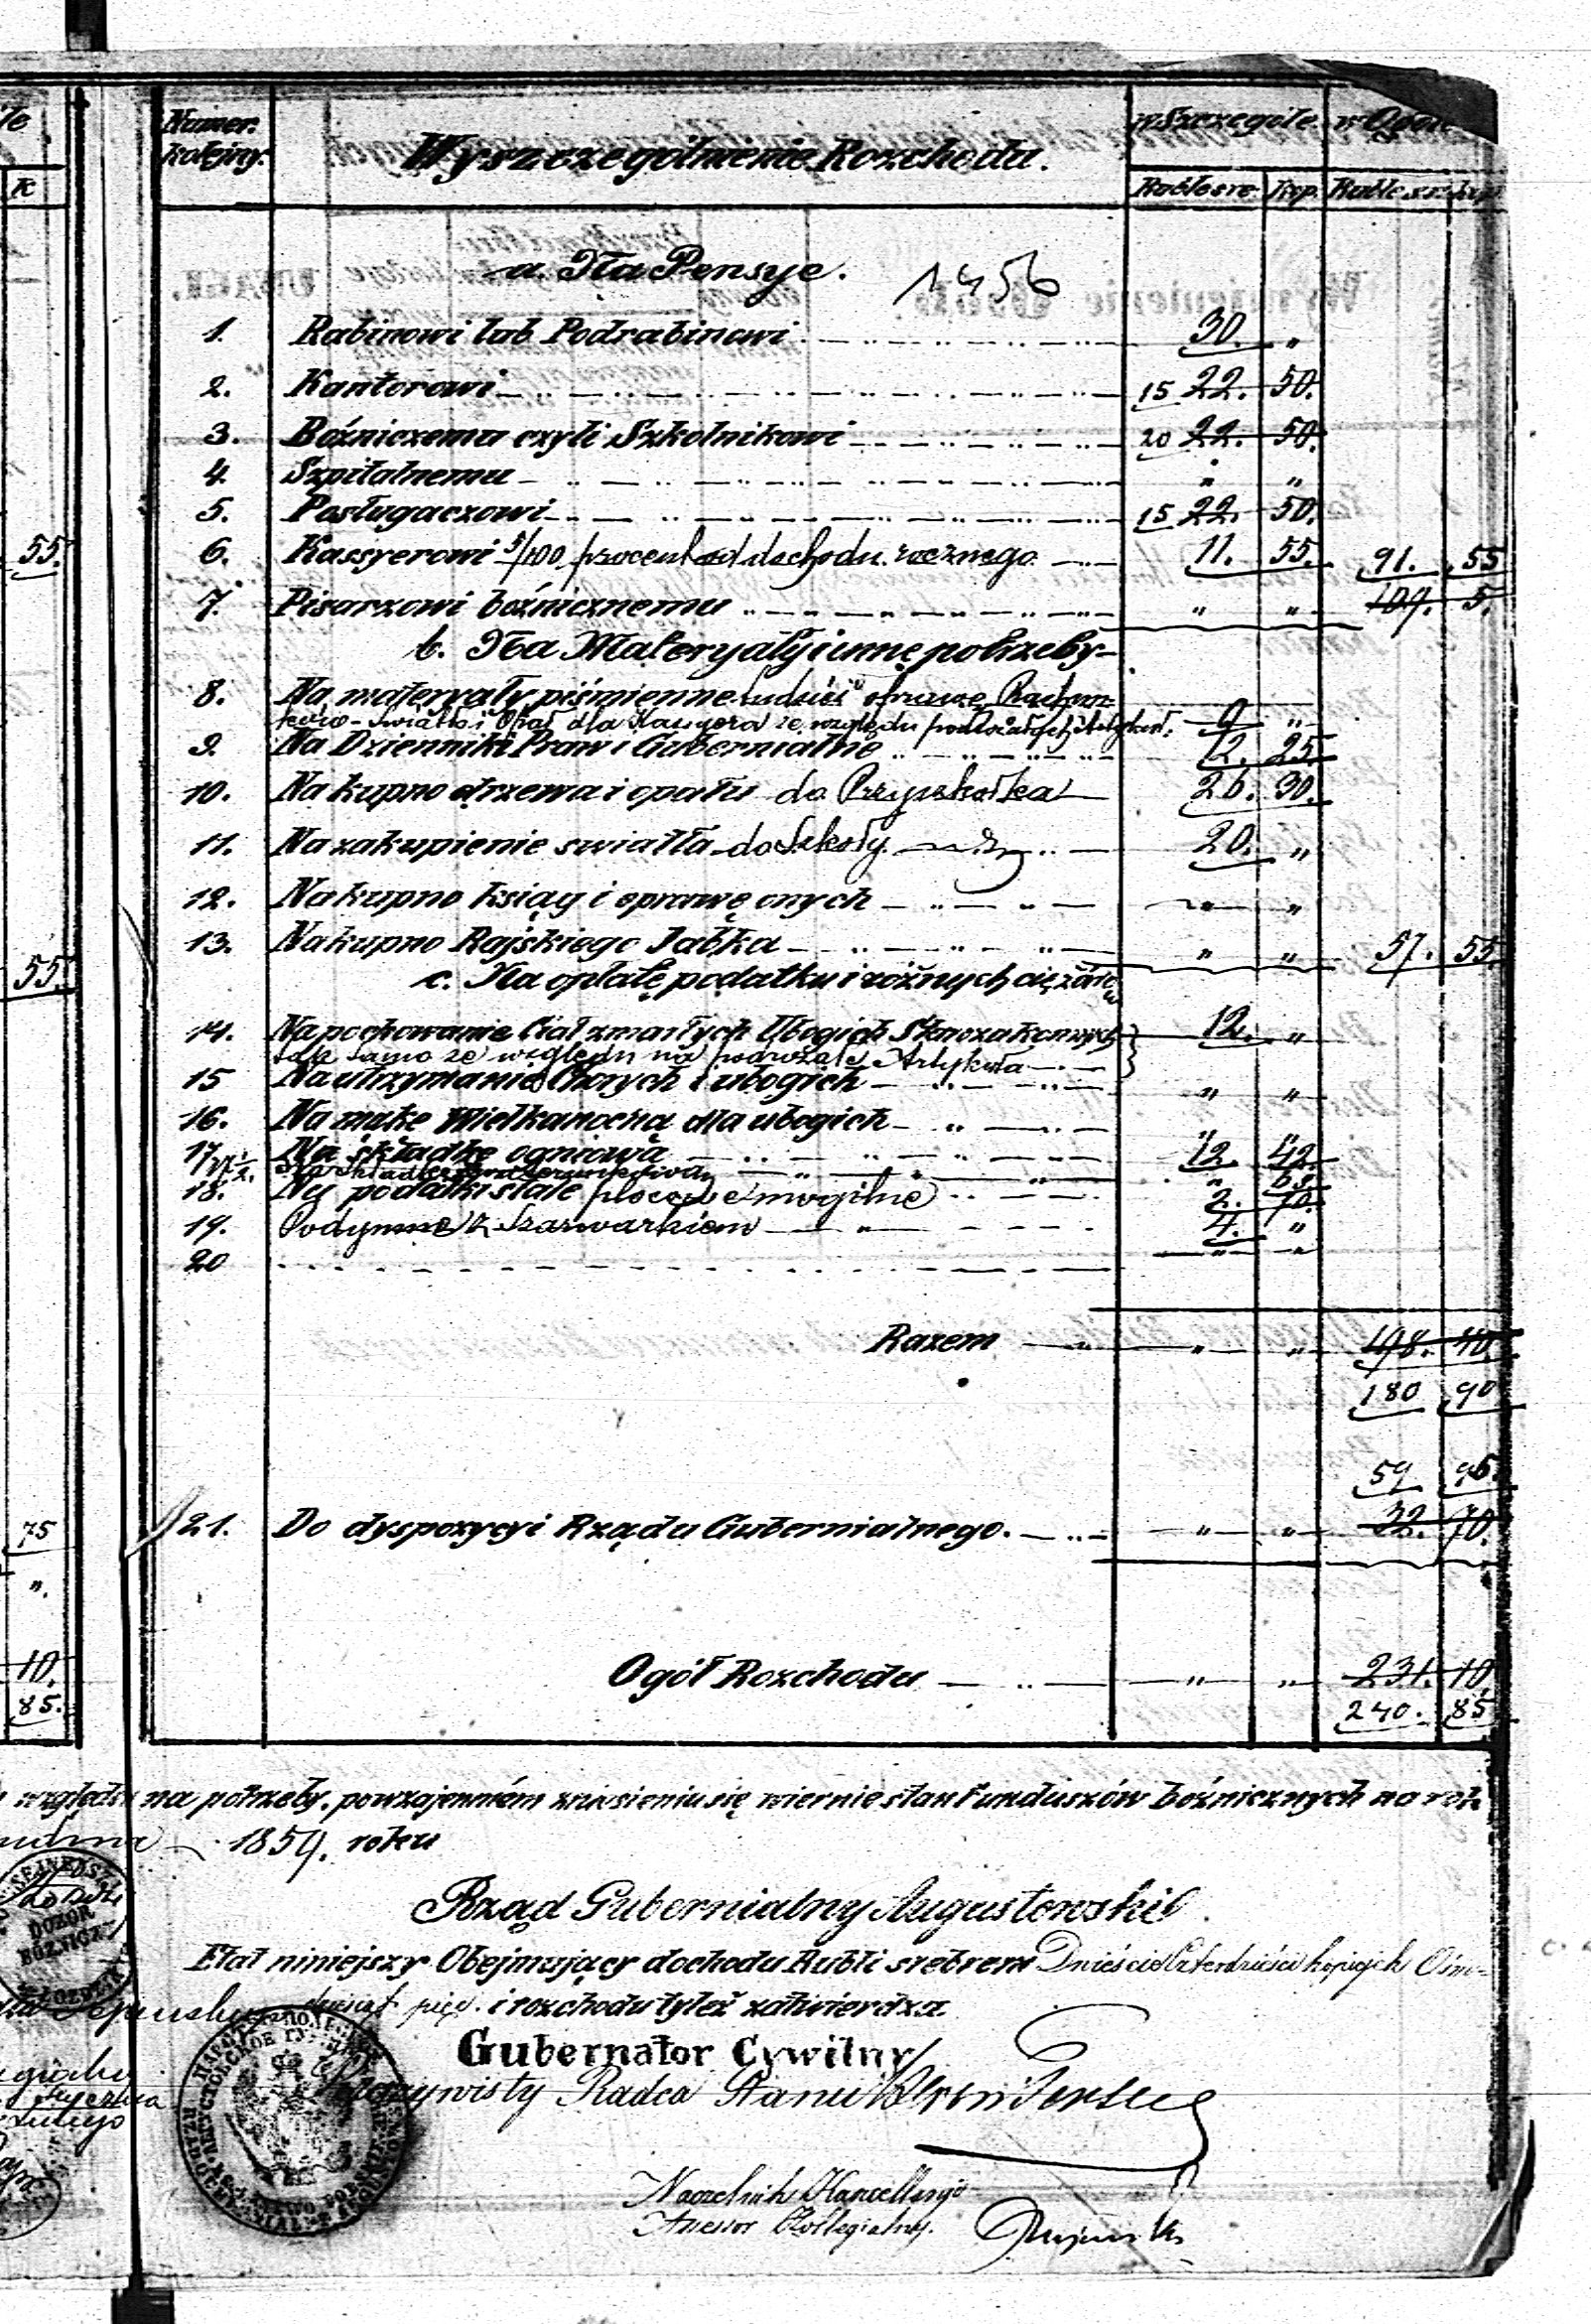 Numer kolejny.
Wyszczególnienie Rozchodu.
w Szczególe
w Ogóle
Ruble sre. Kop. Ruble sr. kop
a. Na Pensye. 1456
1. Rabinowi lub Podrabinowi 30. "
2. Kantorowi 15 22. 50.
3. Bóźniczemu czyli Szkolnikowi 20 22. 50.
4. Szpitalnemu " "
5. Posługaczowi 15 22. 50.
55. 6. Kassyerowi 5/100 procent od dochodu rocznego 11. 55. 91. 55
7. Pisarzowi bóźnicznemu " " 109. 5.
b. Na Materyały i inne potrzeby
8. Na materyały piśmienne tudzież oprawę
światło i Opał dla Kassyera ze względu 9 "
9. Na Dzienniki Praw i Gubernialne 2. 25.
10. Na kupno drzewa i opału do Przyszkołka 26. 30.
11. Na zakupienie swiatła do Szkoły 20. "
12. Na kupno ksiąg i oprawę onych " "
13. Na kupno Rajskiego Jabłka " " 57. 55
55. c. Na opłatę podatku i różnych ciężarów
14. Na pochowanie Ciał zmarłych Ubogich Starozakonnych 12. "
tak samo ze względu na podrożałe Artykuła
15 Na utrzymanie Chorych i ubogich " "
16. Na mąkę Wielkanocną dla ubogich
17. Na składkę ogniową 12. 42.
17 1/2. Na składkę
18. Na podatki stałe place mogilne 2. 70.
19. Podymne z Szarwarkiem 4. "
20 " "
Razem " " 198. 40.
180 90
59 95.
75 21. Do dyspozycyi Rządu Gubernialnego. " " 32. 70.
".
10. Ogół Rozchodu " " 231. 10.
85. 240. 85
względu na potrzeby, powzajemném zniesieniu się wiernie stan Funduszów bóźnicznych na rok
1859. roku
DOZOR
BÓŹNICZY
Rząd Gubernialny Augustowski
Etat niniejszy Obejmujący dochodu Rubli srebrem Dwieście Czterdzieści kopiejek Ośm-
dziesiąt pięć. i rozchodu tyleż zatwierdza.
Gubernator Cywilny
Rzeczywisty Radca Stanu
Naczelnik Kancellaryi
Assessor Kollegialny.